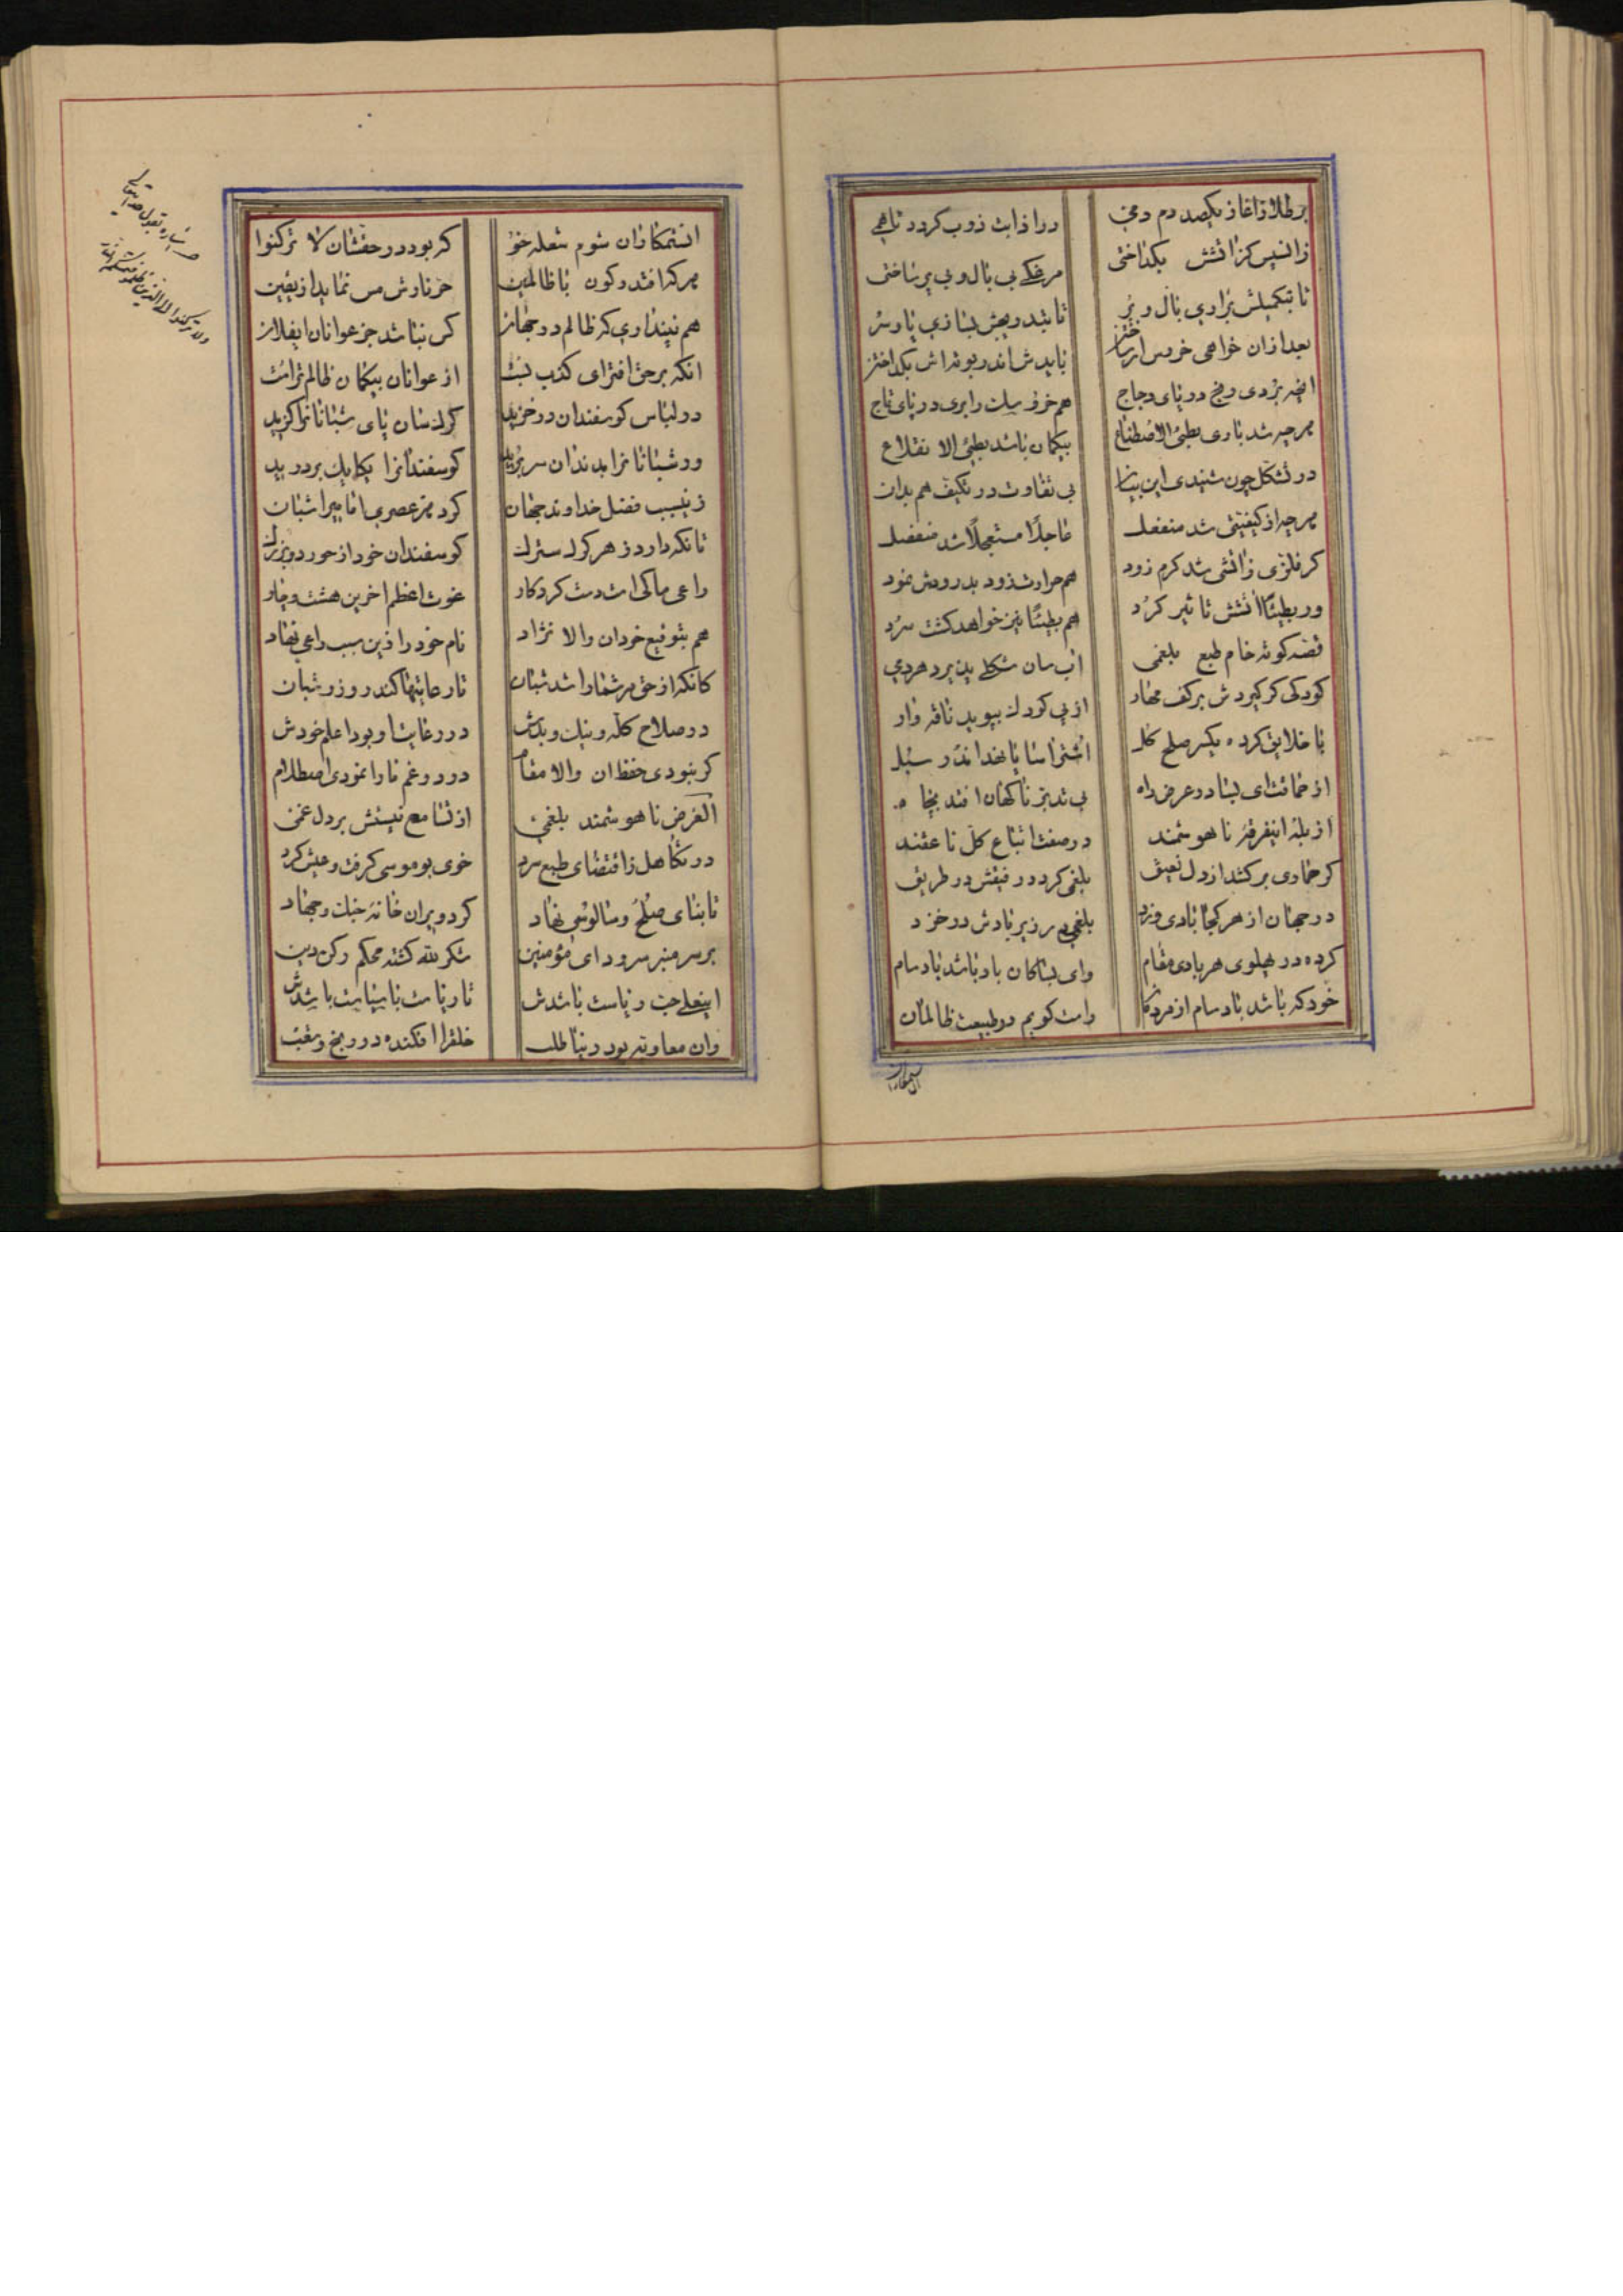 بر طلا زاغاز یکصد دم دمی در اذابت ذوب کردد تا همی
زانپس کز اتشش بکداختی مرغکی بی بال و بی پر ساختی
تا بتکمیلش براری بال و پر
بعد ازان خواهی خروس ار ساختن بایدش اندر بوته اش بکداختن
انچه بردی رنج در پای دجاج هم خروسك را بری در پای تاج
هرچه شد باری بطیئ الاصطناع بیکمان باشد بطیئ الانقلاع
در تشکل چون شنیدی این بیان بی تفاوت در تکیف هم بدان
هرچه از کیفیتی شد منفعل عاجلا مستعجلا شد منفصل
کر فلزی زاتشی شد کرم زود هم حرارت زود بدرودش نمود
ور بطیئا اتشش تاثیر کرد هم بطیئا نیز خواهد کشت سرد
قصه کوته خام طبع بلغمی اب سان شکلی پذیرد هر دمی
کودکی کر کیردش بر کف مهار از پی کودك بپوید ناقه وار
با خلایق کرده یکسر صلح کل اشتر اسا پا نهد اندر سبل
از حماقت ای بسا در عرض راه بی تدبر ناکهان افتد بچاه
از بله اینفرقه ناهوشمند در صفت اتباع کل ناعقند
کر حماری بر کشد از دل نعیق بلغمی کردد رفیقش در طریق
در جهان از هر کجا بادی وزد بلغمی در زیر بادش در خزد
کرده در پهلوی هر بادی مقام وای بسا کان باد باشد باد سام
خود که باشد باد سام از مردکان راست کویم در طبیعت ظالمان
انستمکاران شوم شعله خو که بود در حقشان لا ترکنوا
هر که افتد رکون با ظالمین حر نارش مس نماید از یقین
هم نپنداری که ظالم در جهان کس نباشد جز عوانان ایفلان
انکه بر حق افترای کذب بست از عوانان بیکمان ظالم تر است
در لباس کوسفندان در خزید کرك سان پای شبانانرا کزید
ور شبانانرا بدندان سر برید کوسفندانرا یکایك بر درید
زینسبب فضل خداوند جهان کرد هر عصری اقامیرا شبان
تا نکه دارد ز هر کرك سترك کوسفندان خود از خورد و بزرك
راعی ما کی است دست کردکار غوث اعظم اخرین هشت و چار
هم بتوقیع خود ان والا نژاد نام خود را زین سبب راعی نهاد
کانکه از حق مر شما را شد شبان تا رعایتها کند روز و شبان
در صلاح کله و نیك و بدش در رعایت او بود اعلم خودش
کر نبودی حفظ ان والا مقام درد و غم ما را نمودی اصطلام
الغرض ناهوشمند بلغمی از تسامع نیستش بر دل غمی
در تکاهل زاقتضای طبع سرد خوی بوموسی کرفت و عیش کرد
تا بنای صلح و سالوسی نهاد کرد ویران خانه جنك و جهاد
بر سر منبر سرود ای مؤمنین شکر لله کشته محکم رکن دین
اینعلی حب ریاست باشدش تا ریاست با سیاست باشدش
وان معاویه بود دنیا طلب خلقرا افکنده در رنج و تعب
اشاره بقول خدایتعالی
ولا ترکنوا الی الذین ظلموا فتمسکم النار
انستمکاران